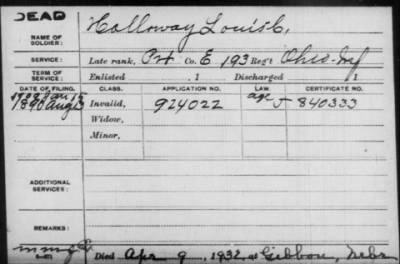 DEAD
NAME OF SOLDIER: Holloway Louis C.
SERVICE: Late rank, Pvt Co. E 193 Reg't Ohio Inf
TERM OF SERVICE: Enlisted , 1 Discharged , 1
DATE OF FILING. CLASS. APPLICATION NO. LAW. CERTIFICATE NO.
1890 Aug Invalid, 924022 age J 840333
Widow,
Minor,
ADDITIONAL SERVICES:
REMARKS:
Died Apr 9, 1932, at Gibbon, Nebr